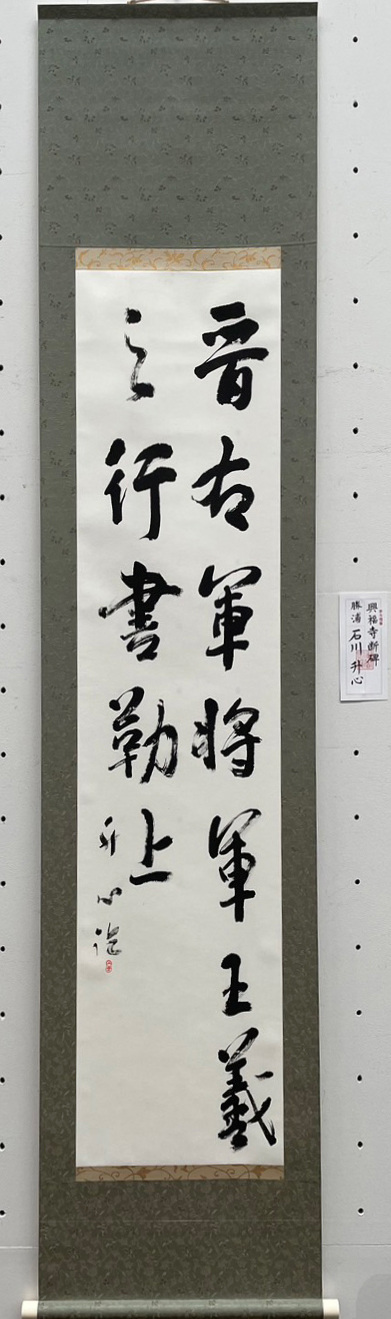 晋右軍將軍王羲
之行書勒上
升心臨
興福寺断碑
勝浦 石川 升心